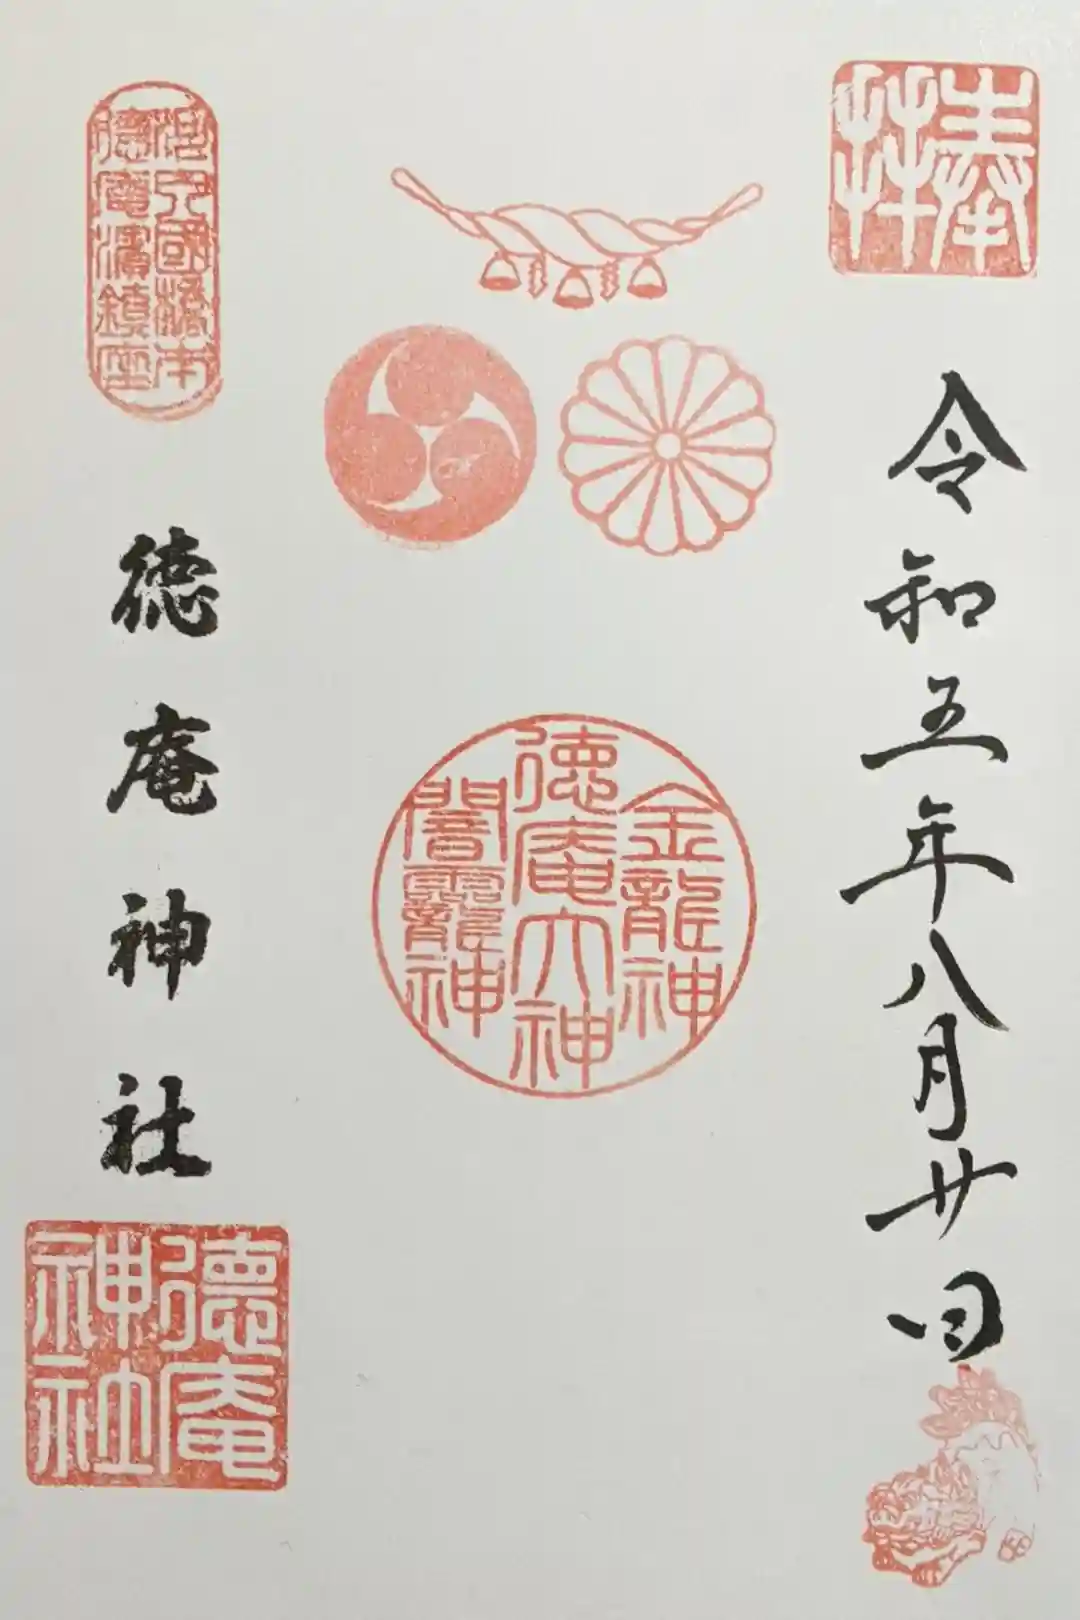 奉
拜
令和五年八月廿日
金龍神
徳庵大神
闇龗神
國
徳庵濱鎮座
徳庵神社
徳庵
神社